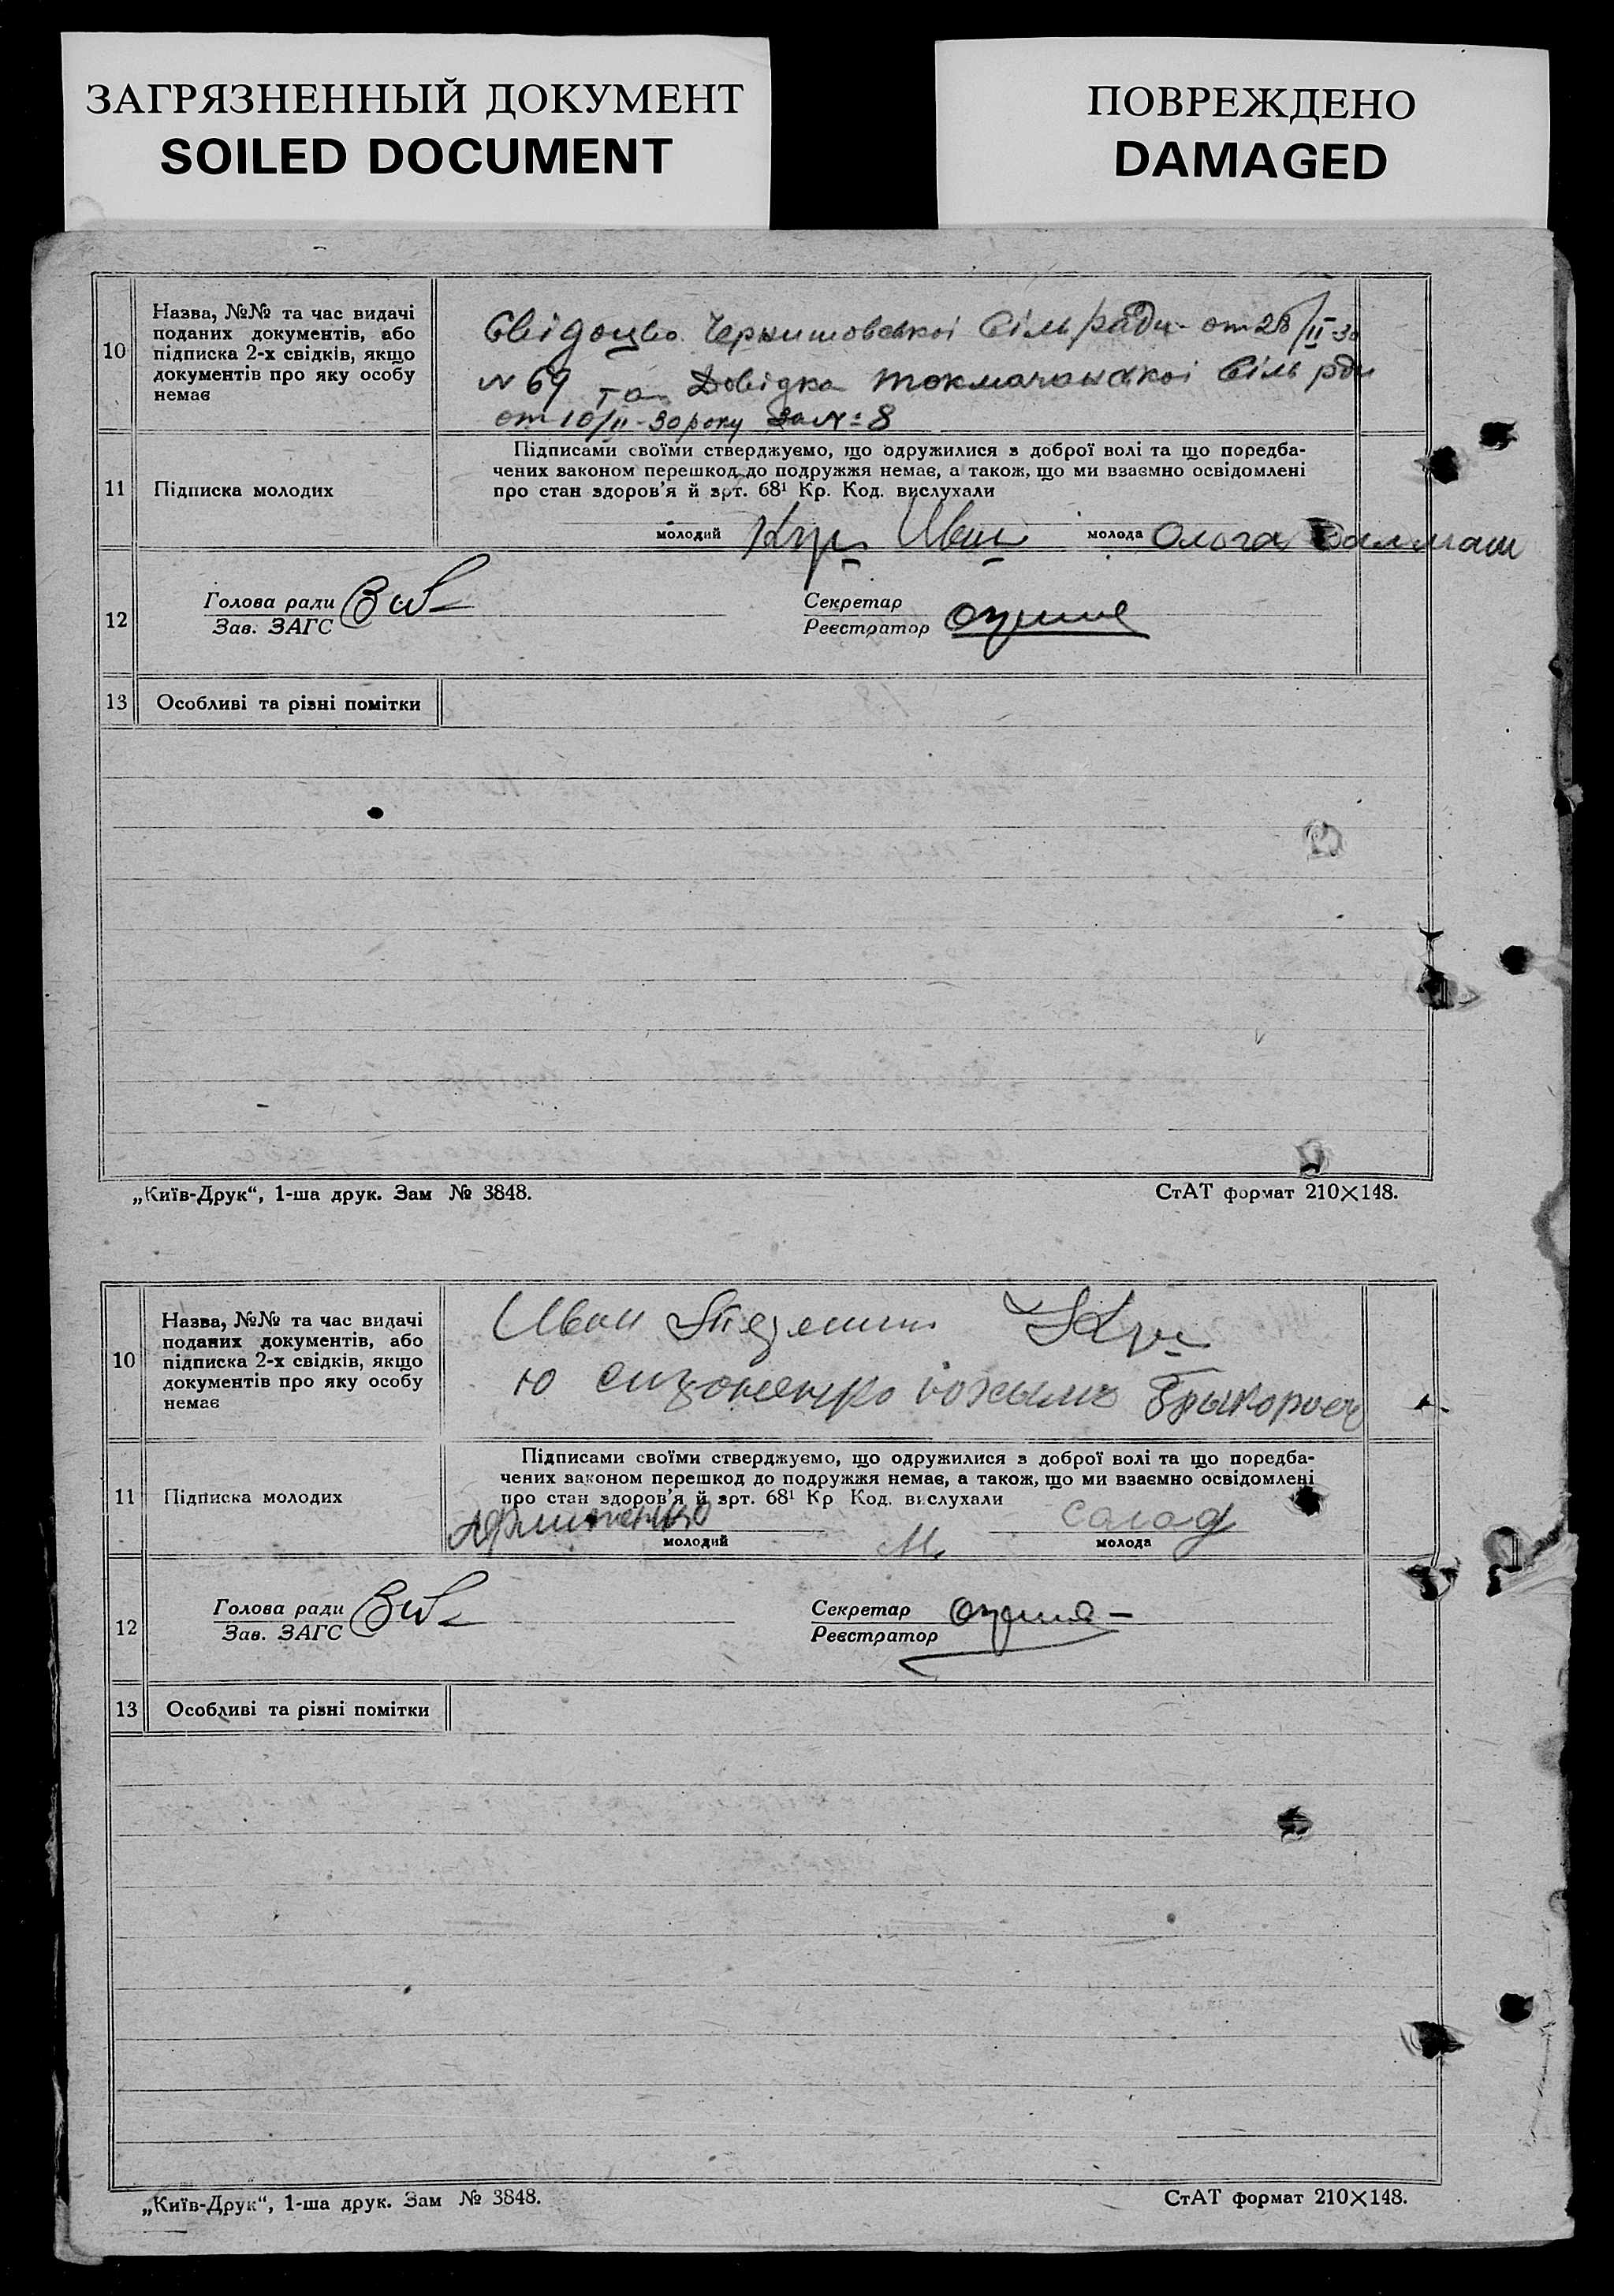 ЗАГРЯЗНЕННЫЙ ДОКУМЕНТ
SOILED DOCUMENT
ПОВРЕЖДЕНО
DAMAGED
10
Назва, №№ та час видачі
поданих документів, або
підписка 2-х свідків, якщо
документів про яку особу
немає
Свідоцво Чернишовської Сільради от 28/II-30
№ 69 та Довідка Токмачанської Сіль рди
от 10/II-30 року За №: 8
11
Підписка молодих
Підписами своїми стверджуємо, що одружилися з доброї волі та що поредба-
чених законом перешкод до подружжя немає, а також, що ми взаємно освідомлені
про стан здоров'я й арт. 68¹ Кр. Код. вислухали
молодий Иван
молода Олога
12
Голова ради
Зав. ЗАГС
Секретар
Реєстратор
13
Особливі та різні помітки
„Київ-Друк“, 1-ша друк. Зам № 3848.
СтАТ формат 210×148.
10
Назва, №№ та час видачі
поданих документів, або
підписка 2-х свідків, якщо
документів про яку особу
немає
Иван
ю
11
Підписка молодих
Підписами своїми стверджуємо, що одружилися з доброї волі та що поредба-
чених законом перешкод до подружжя немає, а також, що ми взаємно освідомлені
про стан здоров'я й арт. 68¹ Кр Код. вислухали
М.
молодий
молода
12
Голова ради
Зав. ЗАГС
Секретар
Реєстратор
13
Особливі та різні помітки
„Київ-Друк“, 1-ша друк. Зам № 3848.
СтАТ формат 210×148.